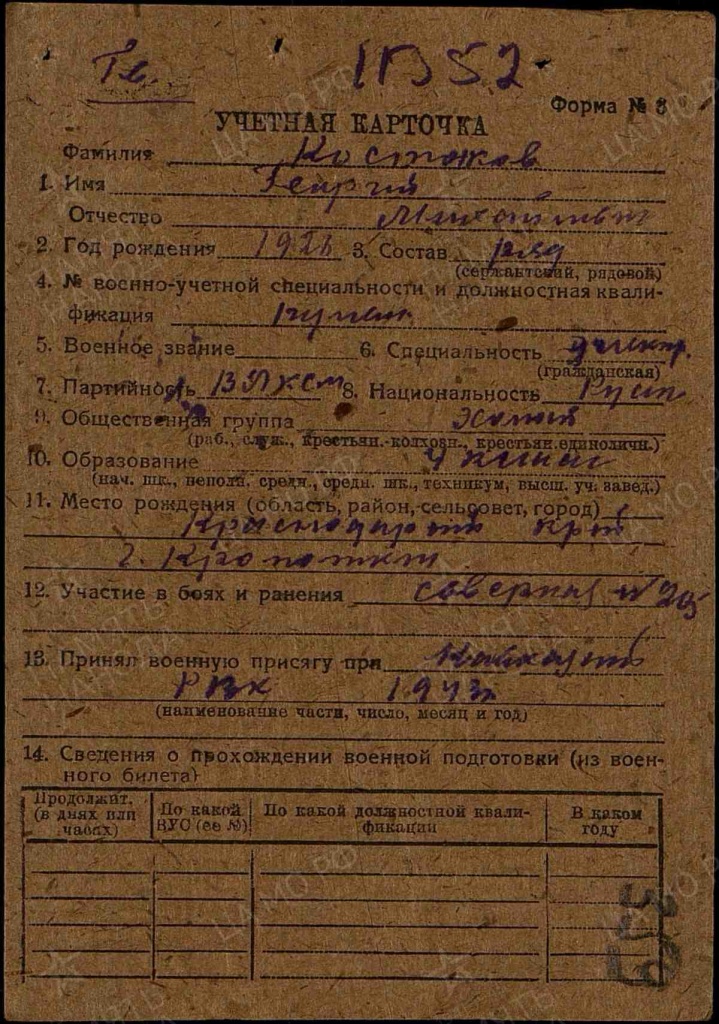 Гв. 52
Форма № 8
УЧЕТНАЯ КАРТОЧКА
Фамилия Костюков
1. Имя Георгий
Отчество
2. Год рождения 1926 3. Состав ряд
(сержантский, рядовой)
4. № военно-учетной специальности и должностная квали-
фикация
5. Военное звание 6. Специальность
(гражданская)
7. Партийность ВЛКСМ 8. Национальность Русск
9. Общественная группа
(раб., служ., крестьян.-колхозн., крестьян.единоличн.)
10. Образование 4
(нач. шк., неполн. средн., средн. шк., техникум, высш. уч. завед.)
11. Место рождения (область, район, сельсовет, город)
Краснодарский край
г. Кропоткин
12. Участие в боях и ранения
13. Принял военную присягу при
РВК 1943г
(наименование части, число, месяц и год)
14. Сведения о прохождении военной подготовки (из воен-
ного билета)
Продолжит. (в днях или часах) По какой ВУС (ее №) По какой должностной квали-фикации В каком году